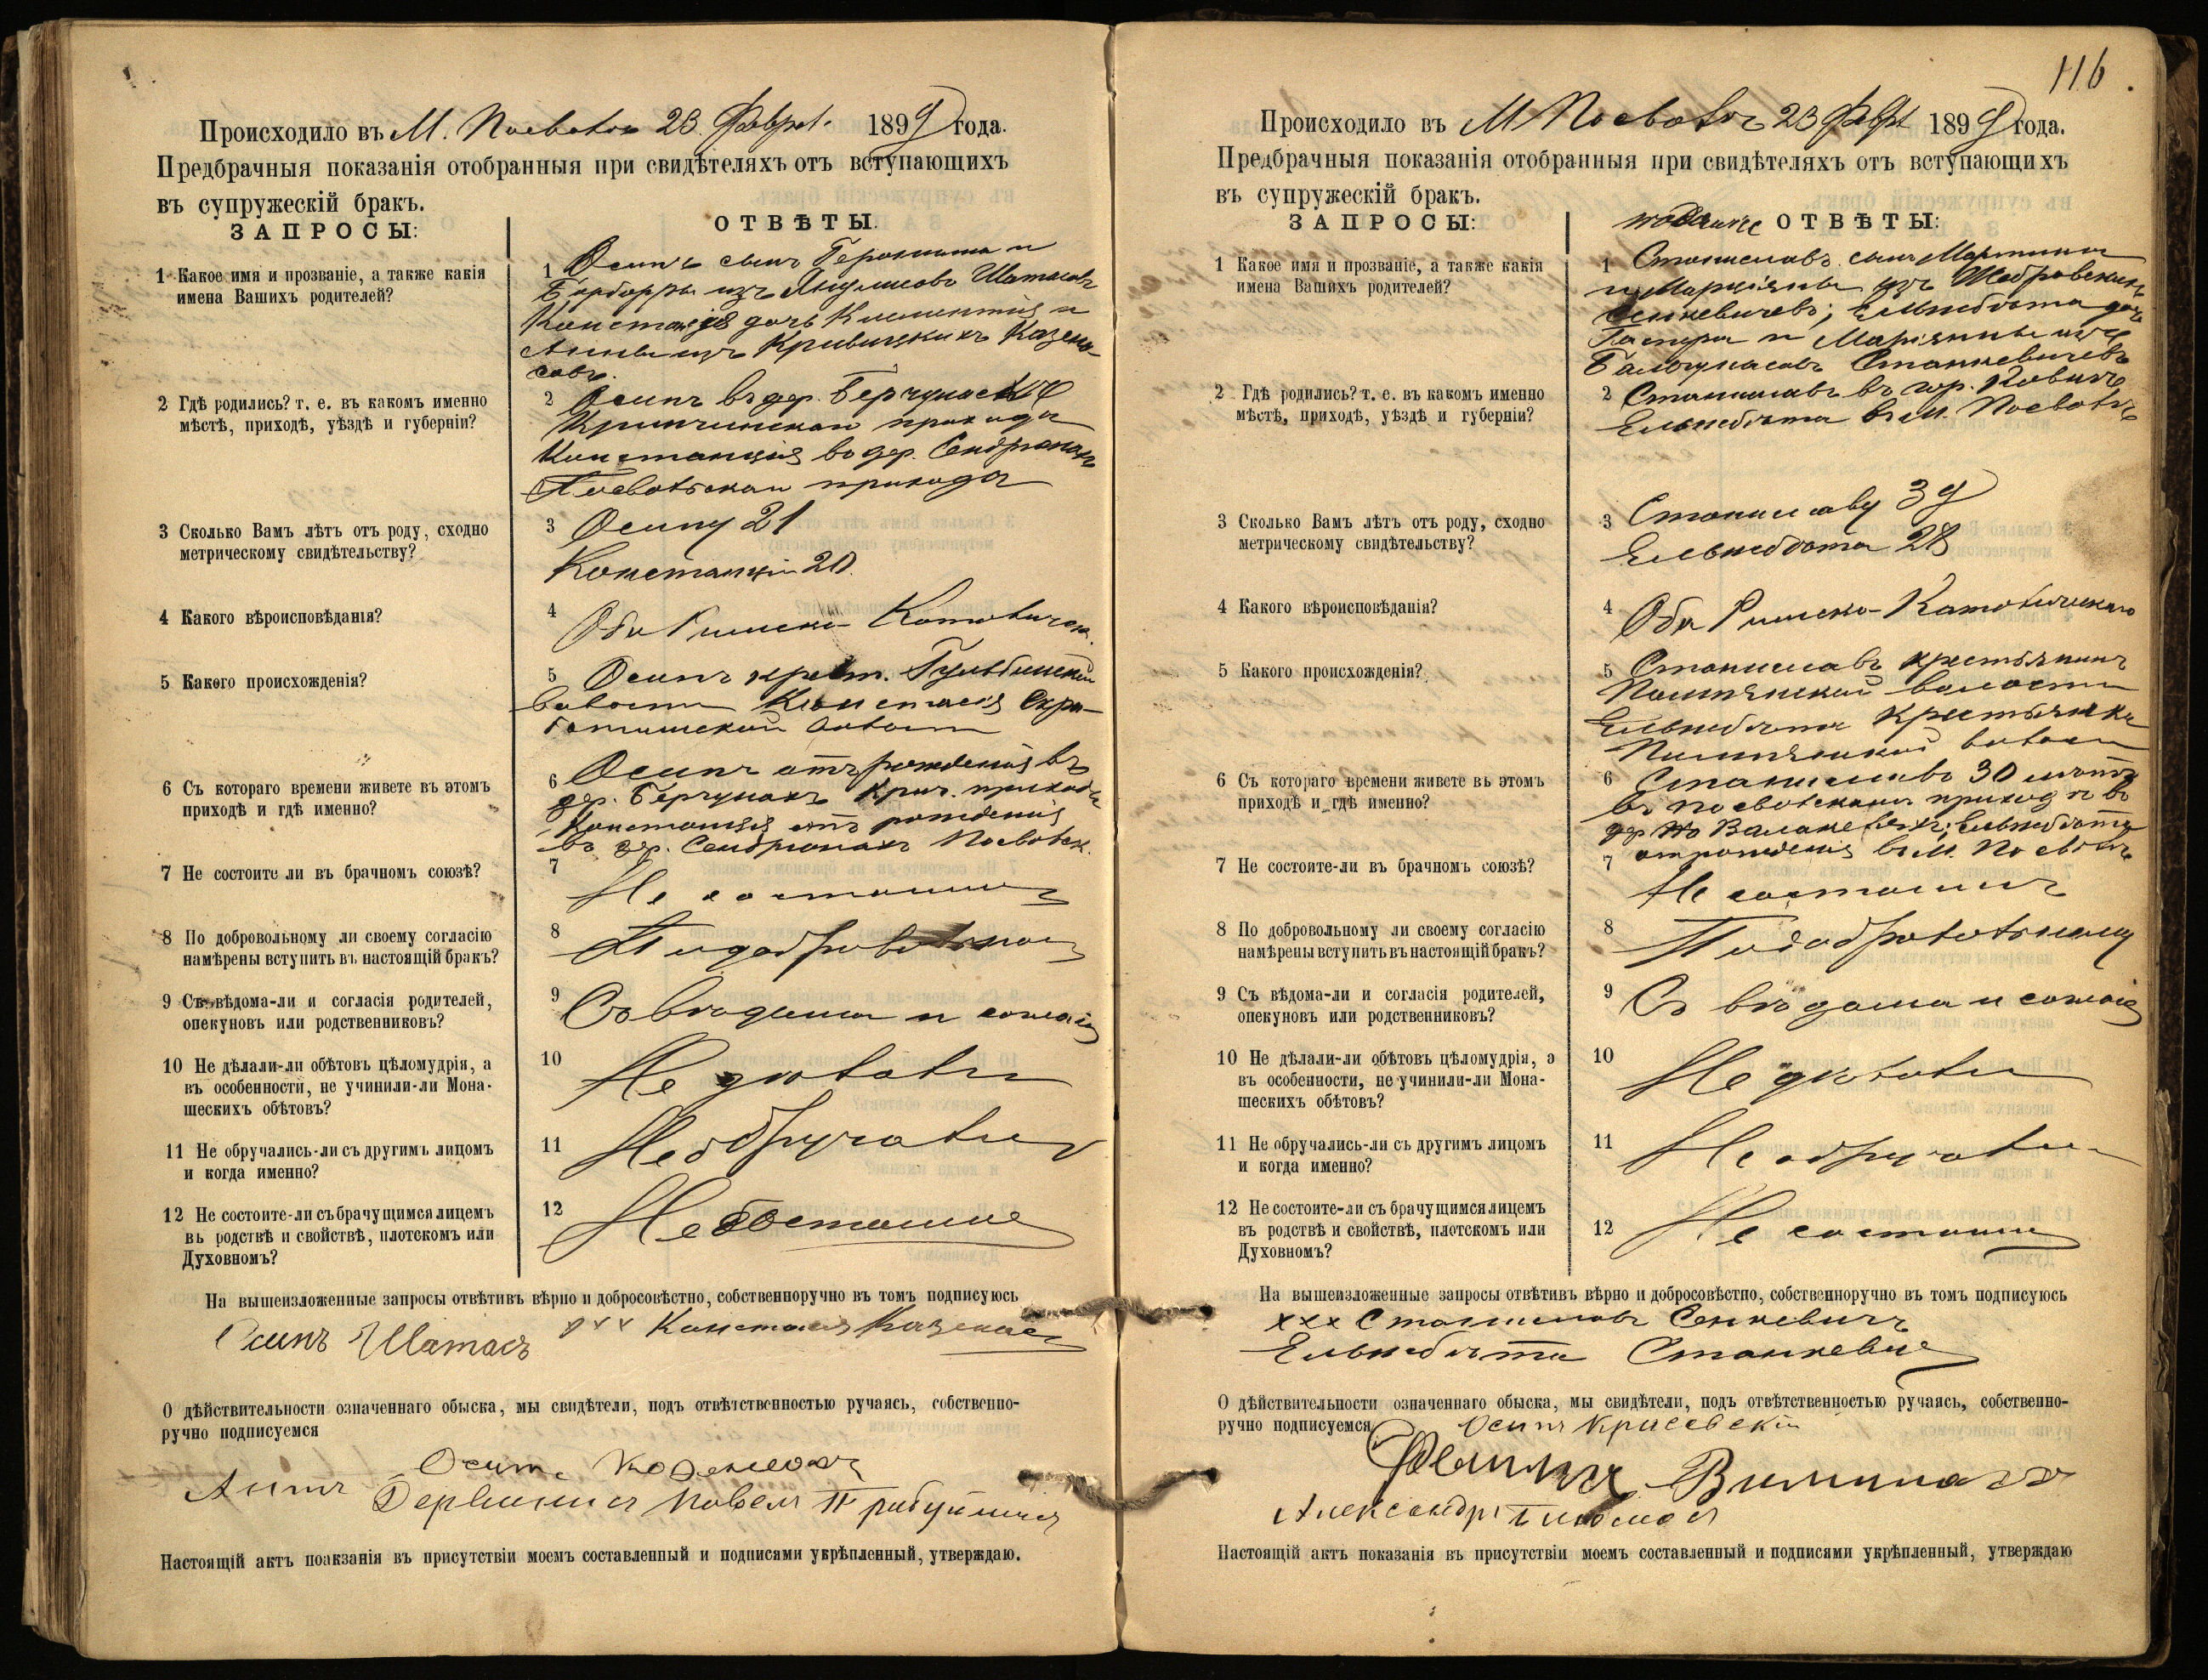 Происходило въ М. Посволь 23 Феврал. 1899 года.
Предбрачныя показанія отобранныя при свидѣтеляхъ отъ вступающихъ
въ супружескій бракъ.
ЗАПРОСЫ:
ОТВѢТЫ.
1 Какое имя и прозваніе, а также какія
имена Вашихъ родителей?
1 Осипъ сынъ Геронима и
Барборы изъ Шатасовъ
Констанція дочь Климентія и
Анны изъ Кривицкихъ Казена-
совъ.
2 Гдѣ родились? т. е. въ какомъ именно
мѣстѣ, приходѣ, уѣздѣ и губерніи?
2 Осипъ въ дер. Берчунахъ
Кринчинскаго прихода
Констанція въ дер. Сендрюнахъ
Посвольскаго прихода
3 Сколько Вамъ лѣтъ отъ роду, сходно
метрическому свидѣтельству?
3 Осипу 21
Констанціи 20.
4 Какого вѣроисповѣданія?
4 Оба Римско-Католическ.
5 Какого происхожденія?
5 Осипъ крест. Гульбинской
волости Констанція Скро-
ботишской волости
6 Съ котораго времени живете въ этомъ
приходѣ и гдѣ именно?
6 Осипъ отъ рожденія въ
дер. Берчунахъ Крин. прихода
Констанція отъ рожденія
въ дер. Сендрюнахъ Посвольск.
7 Не состоите ли въ брачномъ союзѣ?
7 Не состоимъ
8 По добровольному ли своему согласію
намѣрены вступить въ настоящій бракъ?
8 По добровольному
9 Съ вѣдома-ли и согласія родителей,
опекуновъ или родственниковъ?
9 Съ вѣдома и согласія
10 Не дѣлали-ли обѣтовъ цѣломудрія, а
въ особенности, не учинили-ли Мона-
шескихъ обѣтовъ?
10 Не дѣлали
11 Не обручались-ли съ другимъ лицомъ
и когда именно?
11 Не обручались
12 Не состоите-ли съ брачущимся лицемъ
въ родствѣ и свойствѣ, плотскомъ или
Духовномъ?
12 Не состоимъ
На вышеизложенные запросы отвѣтивъ вѣрно и добросовѣстно, собственноручно въ томъ подписуюсь
Осипъ Шатасъ ххх Констанція Казенасъ
О дѣйствительности означеннаго обыска, мы свидѣтели, подъ отвѣтственностью ручаясь, собственно-
ручно подписуемся
Осипъ
Антъ
Настоящій актъ поакзанія въ присутствіи моемъ составленный и подписями укрѣпленный, утверждаю.
116
Происходило въ М Посволь 23 Февр 1899 года.
Предбрачныя показанія отобранныя при свидѣтеляхъ отъ вступающихъ
въ супружескій бракъ.
ЗАПРОСЫ:
ОТВѢТЫ:
1 Какое имя и прозваніе, а также какія
имена Вашихъ родителей?
1 Станиславъ сынъ Мартина
и Маріянны изъ
Сенкевичевъ; Ельжбѣта дочь
Гаспера и Маріянны изъ
Станкевичевъ
2 Гдѣ родились? т. е. въ какомъ именно
мѣстѣ, приходѣ, уѣздѣ и губерніи?
2 Станиславъ въ гор. Ковнѣ
Ельжбѣта въ м. Посволь
3 Сколько Вамъ лѣтъ отъ роду, сходно
метрическому свидѣтельству?
3 Станиславу 39
Ельжбѣта 28
4 Какого вѣроисповѣданія?
4 Оба Римско-Католическаго
5 Какого происхожденія?
5 Станиславъ крестьянинъ
волости
Ельжбѣта крестьянка
волости
6 Съ котораго времени живете въ этомъ
приходѣ и гдѣ именно?
6 Станиславъ 30 лѣтъ
въ Посвольскомъ приходѣ въ
дер. Ельжбѣта
отъ рожденія въ м. Посволь
7 Не состоите-ли въ брачномъ союзѣ?
7 Не состоимъ
8 По добровольному ли своему согласію
намѣрены вступить въ настоящій бракъ?
8 По добровольному
9 Съ вѣдома-ли и согласія родителей,
опекуновъ или родственниковъ?
9 Съ вѣдома и согласія
10 Не дѣлали-ли обѣтовъ цѣломудрія, а
въ особенности, не учинили-ли Мона-
шескихъ обѣтовъ?
10 Не дѣлали
11 Не обручались-ли съ другимъ лицомъ
и когда именно?
11 Не обручались
12 Не состоите-ли съ брачущимся лицемъ
въ родствѣ и свойствѣ, плотскомъ или
Духовномъ?
12 Не состоимъ
На вышеизложенные запросы отвѣтивъ вѣрно и добросовѣстно, собственноручно въ томъ подписуюсь
ххх Станиславъ Сенкевичъ
Ельжбѣта Станкевичъ
О дѣйствительности означеннаго обыска, мы свидѣтели, подъ отвѣтственностью ручаясь, собственно-
ручно подписуемся Осипъ
Александръ
Настоящій актъ показанія въ присутствіи моемъ составленный и подписями укрѣпленный, утверждаю